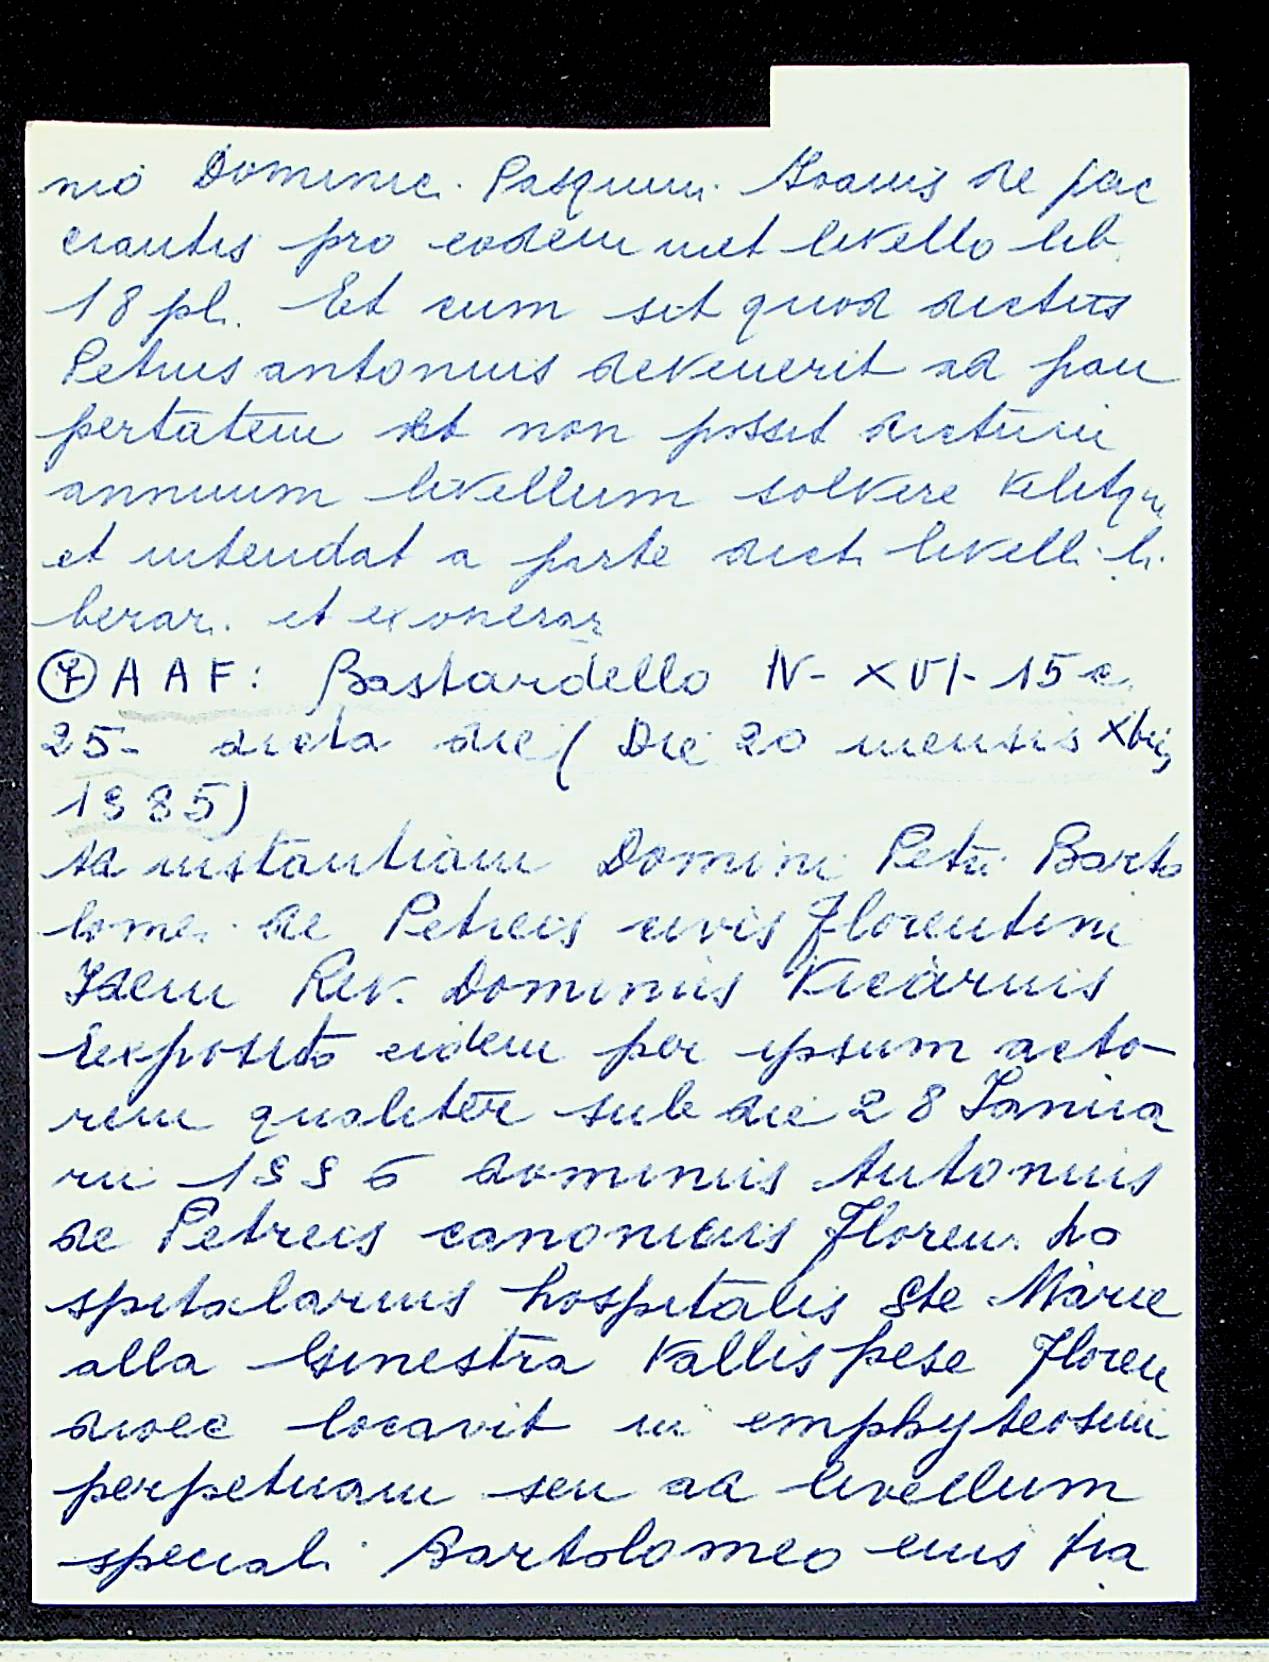 nio Dominic. Pasquini Ioanis de pac
ciantis pro eodem met livello lib.
18 pl. Et cum sit quod dictus
Petrus antonius devenerit ad pau
pertatem et non posset dictum
annuum livellum solvere velitqu,
et intendat a parte dicti livelli li
berar. et exonerar
⑦ A A F: Bastardello IV - XVI - 15 c.
25 - dicta die ( Die 20 mensis Xbris
1585)
Ad instantiam Domini Petri Barto
lomei de Petreis civis Florentini
Idem Rev. Dominus Vicarius
Exposito eidem per ipsum acto-
rem qualiter sub die 28 Ianua
rii 1556 dominus Antonius
de Petreis canonicus Floren. ho
spitalarius hospitalis Ste Marie
alla Ginestra Vallis pese Floren
dioec locavit in emphyteosim
perpetuam seu ad livellum
speciali Bartolomeo eius fra